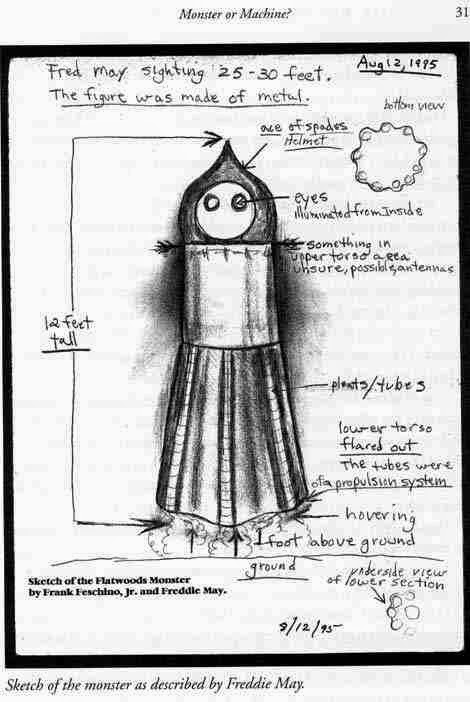 Monster or Machine?
31
Fred may sighting 25-30 feet.
Aug 12, 1995
The figure was made of metal.
bottom view
ace of spades
Helmet
eyes
illuminated from inside
something in
upper torso area
unsure, possible, antennas
12 feet
tall
pleats/tubes
lower torso
flared out
The tubes were
of a propulsion system
hovering
1 foot above ground
ground
underside view
of lower section
Sketch of the Flatwoods Monster
by Frank Feschino, Jr. and Freddie May.
8/12/95
Sketch of the monster as described by Freddie May.